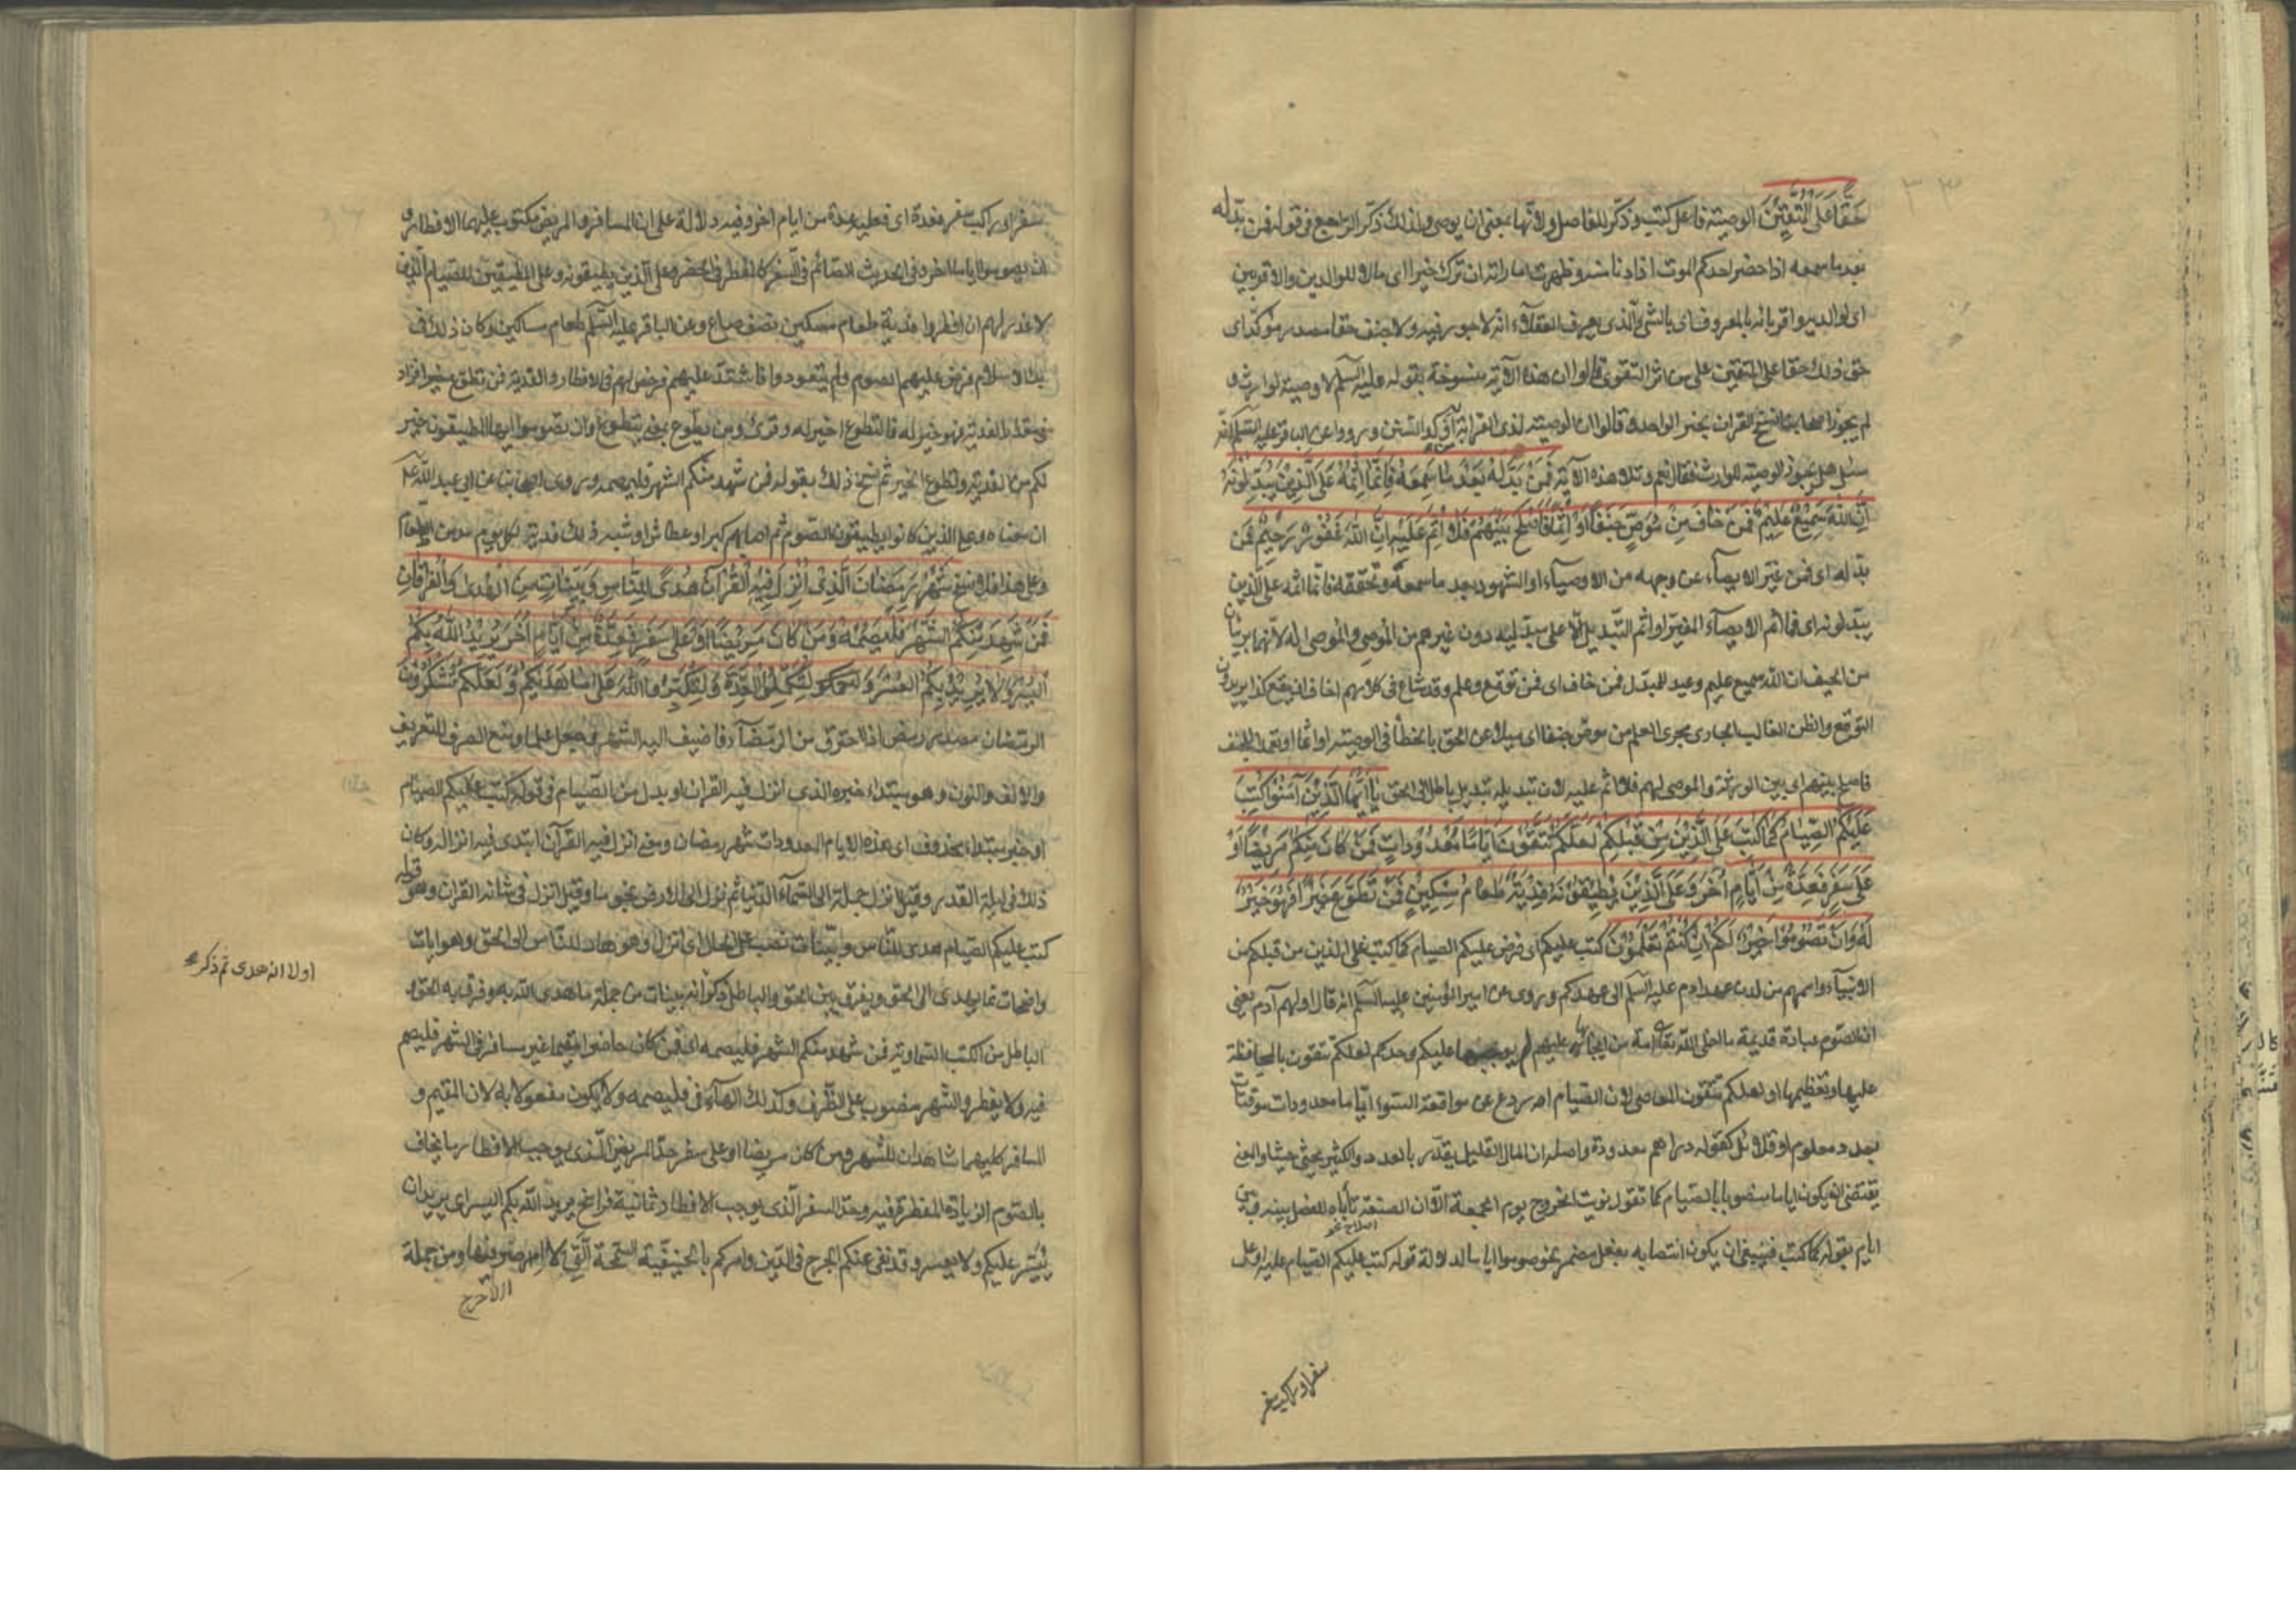 حَقًّا عَلَى الْمُتَّقِينَ الوصيّة فاعل كتب وذكّر للفاصل ولانّها بمعنى ان يوصى ولذلك ذكّر الراجع فى قوله فمن بدّله
بعد ما سمعه اذا حضر احدكم الموت اذا دنا منه وظهرت اماراته ان ترك خيرا اى مالا للوالدين والاقربين
اى لوالديه واقربائه بالمعروف اى بالشئ الّذى يعرف العقلاء انّه لا جور فيه ولا جنف حقا مصدر مؤكّد اى
حق ذلك حقا على المتقين على من اثر التقوى قالوا ان هذه الآية منسوخة بقوله عليه السّلم لا وصية لوارث و
لم يجوز اصحابنا نسخ القران بخبر الواحد وقالوا ان الوصية لذى القرابة اوكد السنن ورووا عن الباقر عليه السّلم انّه
سئل هل يجوز الوصية للوارث فقال نعم وتلا هذه الآية فَمَنْ بَدَّلَهُ بَعْدَ مَا سَمِعَهُ فَاِنَّمَا اِثْمُهُ عَلَى الَّذِيْنَ يُبَدِّلُوْنَهُ
اِنَّ اللّٰهَ سَمِيْعٌ عَلِيْمٌ فَمَنْ خَافَ مِنْ مُوْصٍ جَنَفًا اَوْ اِثْمًا فَاَصْلَحَ بَيْنَهُمْ فَلَا اِثْمَ عَلَيْهِ اِنَّ اللّٰهَ غَفُوْرٌ رَحِيْمٌ فَمَن
بدّله اى فمن غيّر الايصاء عن وجهه من الاوصياء او الشهود بعد ما سمعه وتحققه فانما اثمه على الّذين
يبدّلونه اى فما اثم الايصاء المغيّر او اثم التّبديل الّا على مبدّليه دون غيرهم من الموصى والموصى له لانّهما بريئان
من الحيف ان اللّه سميع عليم وعيد للمبدّل فمن خاف اى فمن توقع وعلم وقد شاع فى كلامهم اخاف ان يقع كذا يريدون
التوقّع والظن الغالب الجارى مجرى العلم من موص جنفا اى ميلا عن الحق بالخطأ فى الوصيّة او اثما او تعمدا للجنف
فاصلح بينهم اى بين الورثة والموصى لهم فلا اثم عليه لان تبديله تبديل باطل الى الحق يَا اَيُّهَا الَّذِيْنَ آمَنُوْا كُتِبَ
عَلَيْكُمُ الصِّيَامُ كَمَا كُتِبَ عَلَى الَّذِيْنَ مِنْ قَبْلِكُمْ لَعَلَّكُمْ تَتَّقُوْنَ اَيَّامًا مَعْدُوْدَاتٍ فَمَنْ كَانَ مِنْكُمْ مَرِيْضًا اَوْ
عَلَى سَفَرٍ فَعِدَّةٌ مِنْ اَيَّامٍ اُخَرَ وَعَلَى الَّذِيْنَ يُطِيْقُوْنَهُ فِدْيَةٌ طَعَامُ مِسْكِيْنٍ فَمَنْ تَطَوَّعَ خَيْرًا فَهُوَ خَيْرٌ
لَهُ وَاَنْ تَصُوْمُوْا خَيْرٌ لَكُمْ اِنْ كُنْتُمْ تَعْلَمُوْنَ كتب عليكم اى فرض عليكم الصيام كما كتب على الذين من قبلكم من
الانبياء واممهم من لدن عهد ادم عليه السّلم الى عهدكم وروى عن امير المؤمنين عليه السّلم انه قال اولهم آدم يعنى
ان الصّوم عبادة قديمة ما اخلى اللّه تعالى امة من ايجابها عليهم لم يوجبها عليكم وحدكم لعلكم تتقون بالمحافظة
عليها وتعظيمها او لعلكم تتقون المعاصى لان الصّيام اردع عن مواقعة السّوء ايّاما معدودات موقتات
بعدد معلوم او قلائل كقوله دراهم معدودة واصله ان المال القليل يقدّر بالعدد والكثير يحثى حثيا والمعنى
يقتضى ان يكون اياما منصوبا بالصّيام كما تقول نويت الخروج يوم الجمعة الّا ان الصنعة تأباه للفصل بينه وبين
ايام بقوله كما كتب فينبغى ان يكون انتصابه بفعل مضمر نحو صوموا اياما لدلالة قوله كتب عليكم الصّيام عليه او على
سفر او راكب سفر
سفر او راكب سفر فعدة اى فعليه عدة من ايام اخر وفيه دلالة على ان المسافر والمريض مكتوب عليهما الافطار و
ان يصوموا اياما اخر وفى الحديث الصّائم فى السّفر كالمفطر فى الحضر وعلى الّذين يطيقونه وعلى المطيقين للصّيام الّذين
لا عذر لهم ان افطروا فدية طعام مسكين نصف صاع وعن الباقر عليه السّلم طعام مساكين وكان ذلك فى
بدء الاسلام فرض عليهم الصوم ولم يتعودوا فاشتدّ عليهم فرخص لهم فى الافطار والفدية فمن تطوع خيرا فزاد
على مقدار الفدية فهو خير له فالتطوع اخير له وقرئ ومن يطوع بمعنى يتطوع وان تصوموا ايها المطيقون خير
لكم من الفدية وتطوع الخير ثم نسخ ذلك بقوله فمن شهد منكم الشهر فليصمه وروى اصحابنا عن ابى عبد اللّه ع
ان معناه وعلى الذين كانوا يطيقون الصّوم ثم اصابهم كبر او عطاش او شبه ذلك فدية لكل يوم مد من الطعام
وعلى هذا فلا نسخ شَهْرُ رَمَضَانَ الَّذِى اُنْزِلَ فِيْهِ الْقُرْآنُ هُدًى لِلنَّاسِ وَبَيِّنَاتٍ مِنَ الْهُدَى وَالْفُرْقَانِ
فَمَنْ شَهِدَ مِنْكُمُ الشَّهْرَ فَلْيَصُمْهُ وَمَنْ كَانَ مَرِيْضًا اَوْ عَلَى سَفَرٍ فَعِدَّةٌ مِنْ اَيَّامٍ اُخَرَ يُرِيْدُ اللّٰهُ بِكُمُ
الْيُسْرَ وَلَا يُرِيْدُ بِكُمُ الْعُسْرَ وَلِتُكْمِلُوا الْعِدَّةَ وَلِتُكَبِّرُوا اللّٰهَ عَلَى مَا هَدَيٰكُمْ وَلَعَلَّكُمْ تَشْكُرُوْنَ
الرمضان مصدر رمض اذا احترق من الرّمضاء فاضيف اليه الشهر فجعل علما ومنع الصرف للتعريف
والالف والنون وهو مبتداء خبره الذى انزل فيه القران او بدل من الصّيام فى قوله كتب عليكم الصّيام
او خبر مبتداء محذوف اى هذه الايام المعدودات شهر رمضان ومعنى انزل فيه القرآن ابتدى فيه انزاله وكان
ذلك فى ليلة القدر وقيل انزل جملة الى السّماء الدّنيا ثم نزل الى الارض نجوما وقيل انزل فى شانه القران وهو قوله
كتب عليكم الصّيام هدى للنّاس وبيّنات نصب على الحال اى انزل وهو هاد للنّاس الى الحق وهو ايات
واضحات مما يهدى الى الحق ويفرّق بين الحق والباطل وذكر انه بينات من جملة ما هدى اللّه به وفرق به الحق و
اولا انه هدى ثم ذكر
الباطل من الكتب السّماوية فمن شهد منكم الشهر فليصمه اى فمن كان حاضرا مقيما غير مسافر فى الشهر فليصم
فيه ولا يفطر والشهر منصوب على الظّرف وكذلك الهاء فى فليصمه ولا يكون مفعولا به لان المقيم و
المسافر كليهما شاهدان للشهر ومن كان مريضا او على سفر حدّ المرض الّذى يوجب الافطار ما يخاف
بالصّوم الزيادة المفرطة فيه وحدّ السفر الّذى يوجب الافطار ثمانية فراسخ يريد اللّه بكم اليسر اى يريد ان
يُيَسّر عليكم ولا يعسر وقد نفى عنكم الحرج فى الدّين وامركم بالحنيفيّة السّمحة الّتى لا اصر فيها ومن جملة